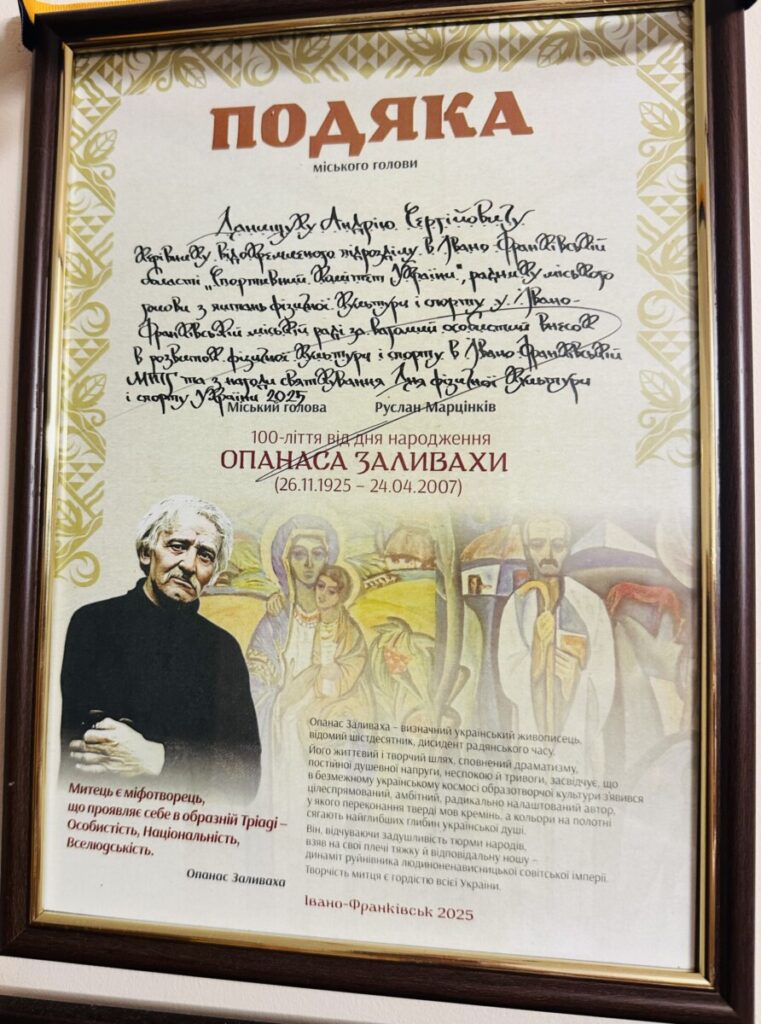 ПОДЯКА
міського голови
Данищуку Андрію Сергійовичу
керівнику відокремленого підрозділу в Івано-Франківській
області „Спортивний комітет України“, раднику міського
голови з питань фізичної культури і спорту у Івано-
Франківській міській раді за вагомий особистий внесок
в розвиток фізичної культури і спорту в Івано-Франківській
МТГ та з нагоди святкування Дня фізичної культури
і спорту України 2025
Міський голова Руслан Марцінків
100-ліття від дня народження
ОПАНАСА ЗАЛИВАХИ
(26.11.1925 – 24.04.2007)
Опанас Заливаха – визначний український живописець,
відомий шістдесятник, дисидент радянського часу.
Його життєвий і творчий шлях, сповнений драматизму,
постійної душевної напруги, неспокою й тривоги, засвідчує, що
в безмежному українському космосі образотворчої культури з'явився
цілеспрямований, амбітний, радикально налаштований автор,
у якого переконання тверді мов кремінь, а кольори на полотні
сягають найглибших глибин української душі.
Він, відчуваючи задушливість тюрми народів,
взяв на свої плечі тяжку й відповідальну ношу –
динаміт руйнівника людиноненависницької совітської імперії.
Творчість митця є гордістю всієї України.
Митець є міфотворець,
що проявляє себе в образній Тріаді –
Особистість, Національність,
Вселюдськість.
Опанас Заливаха
Івано-Франківськ 2025